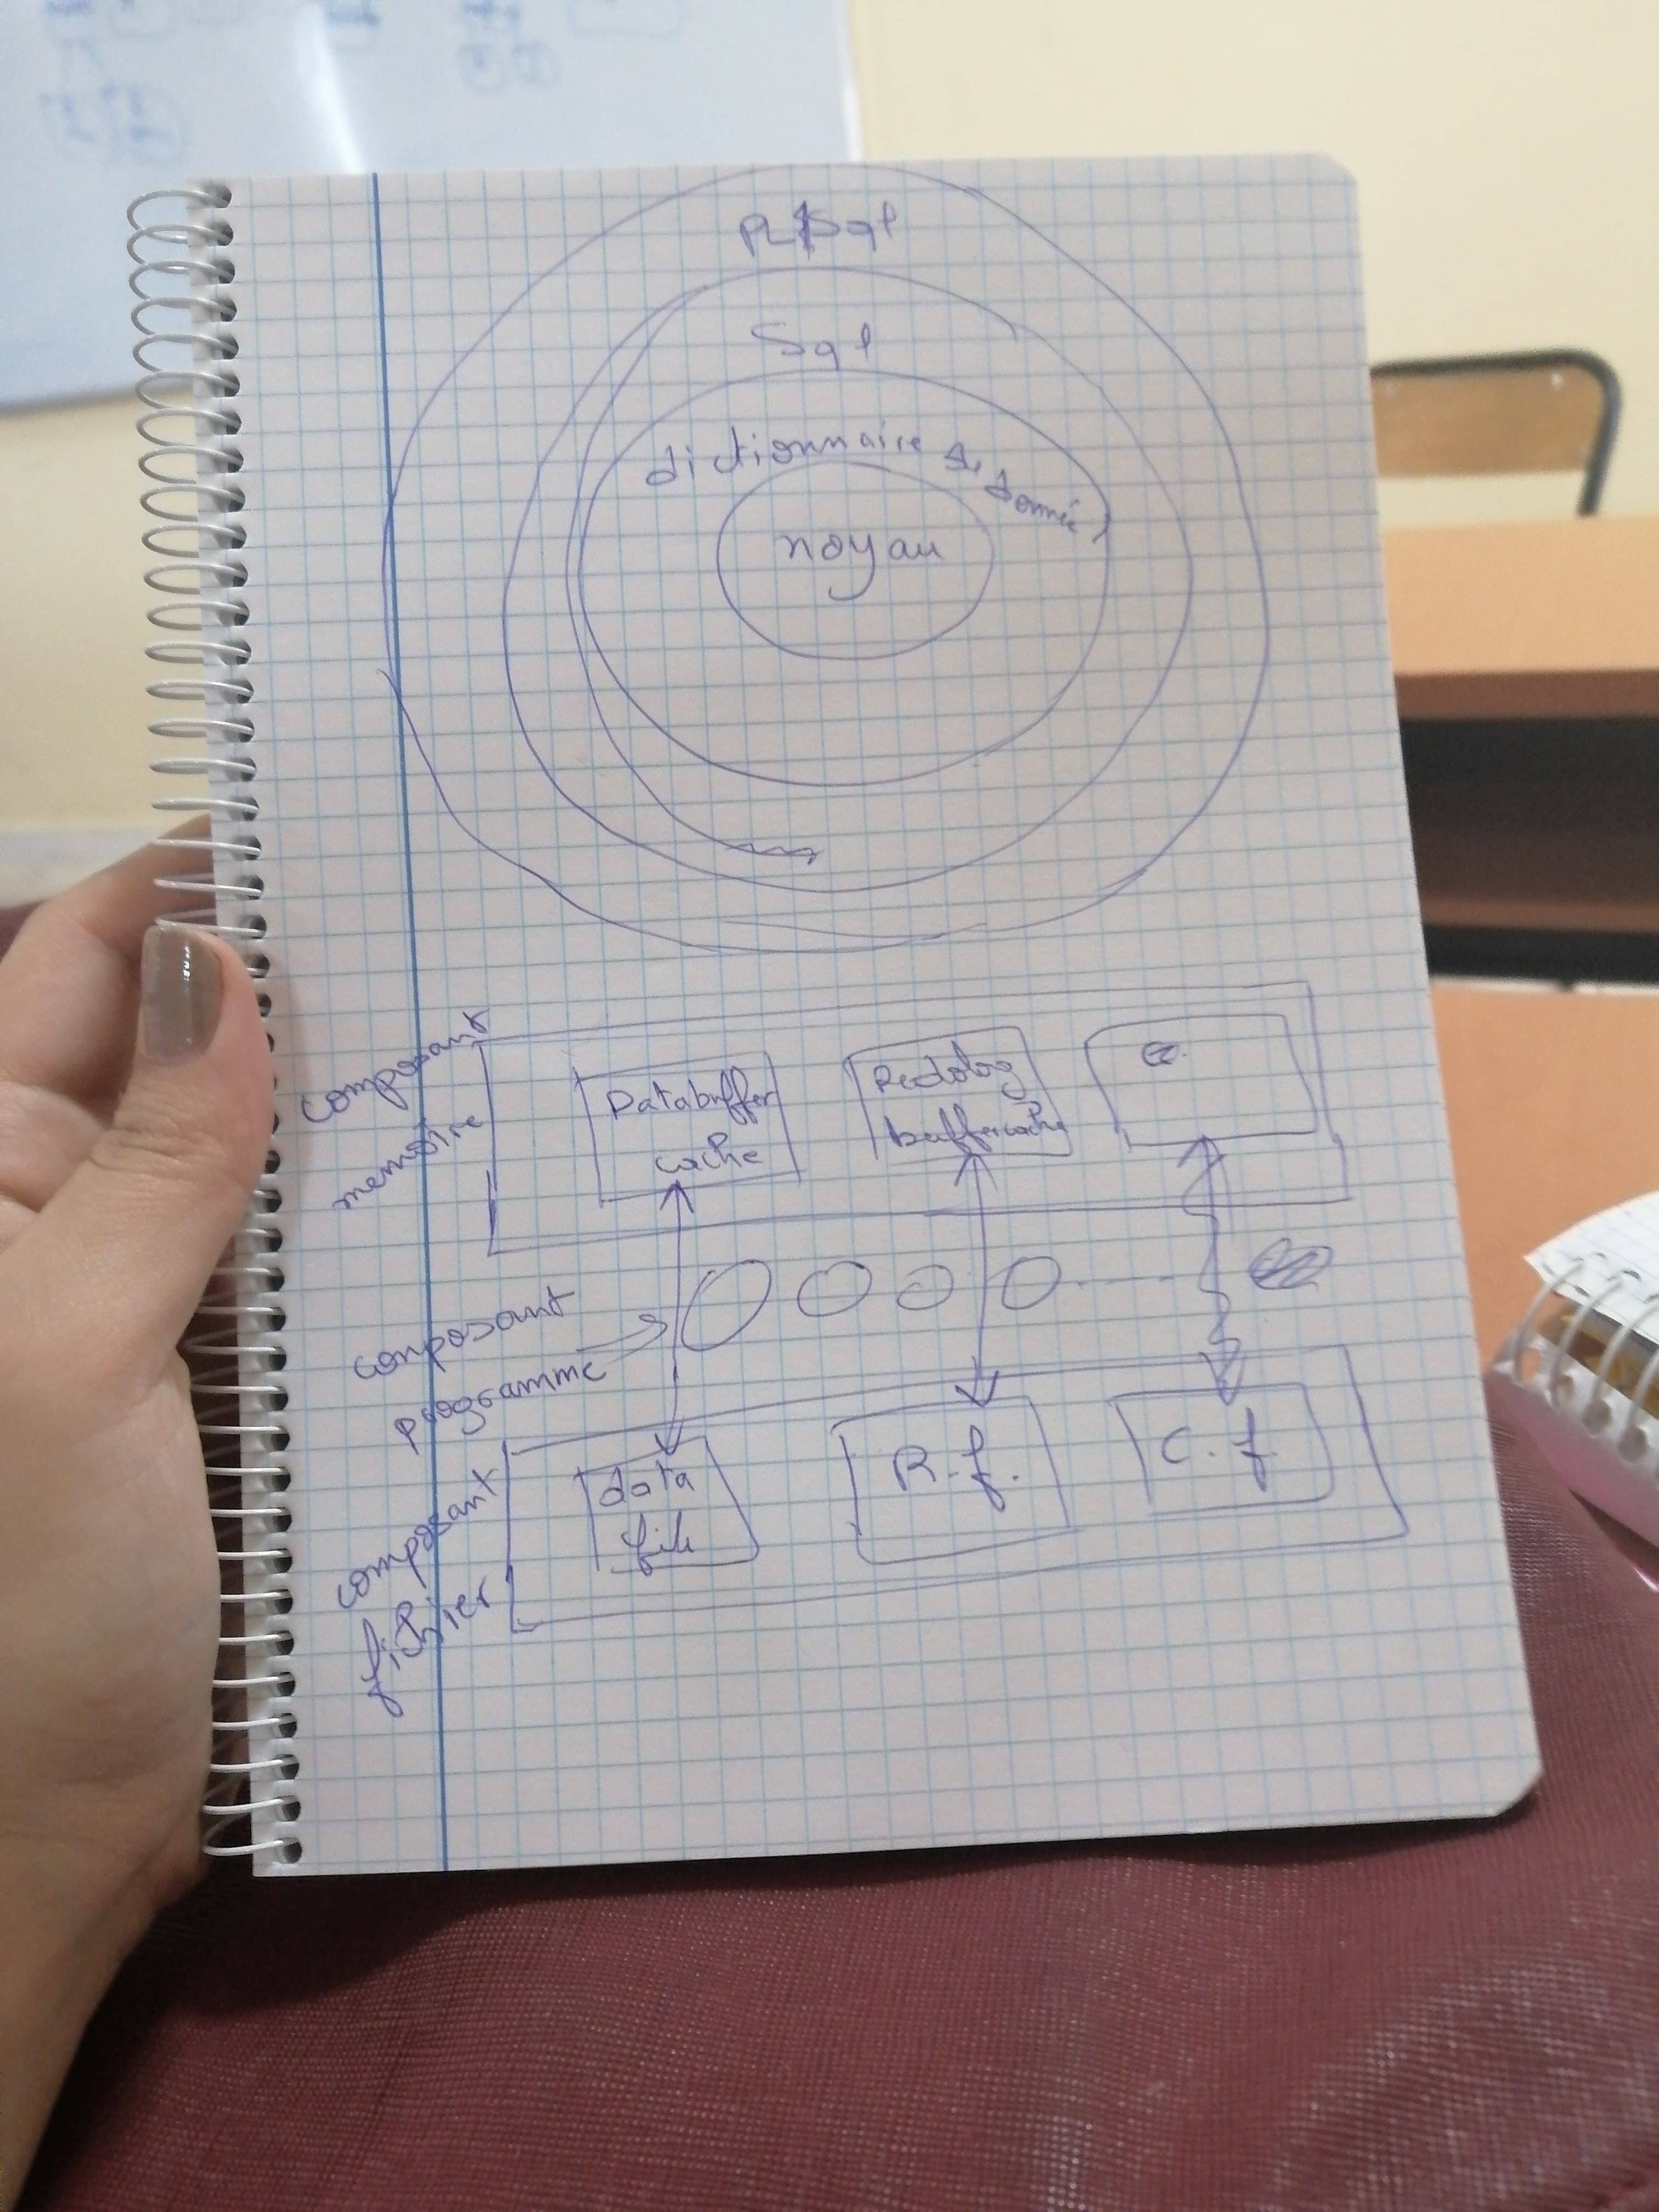 PL/Sql
Sql
dictionnaire de donnée
noyau
composant
memoire
Databuffer
cache
Redolog
buffercache
composant
programme
composant
fichier
data
file
R.f.
C.f.